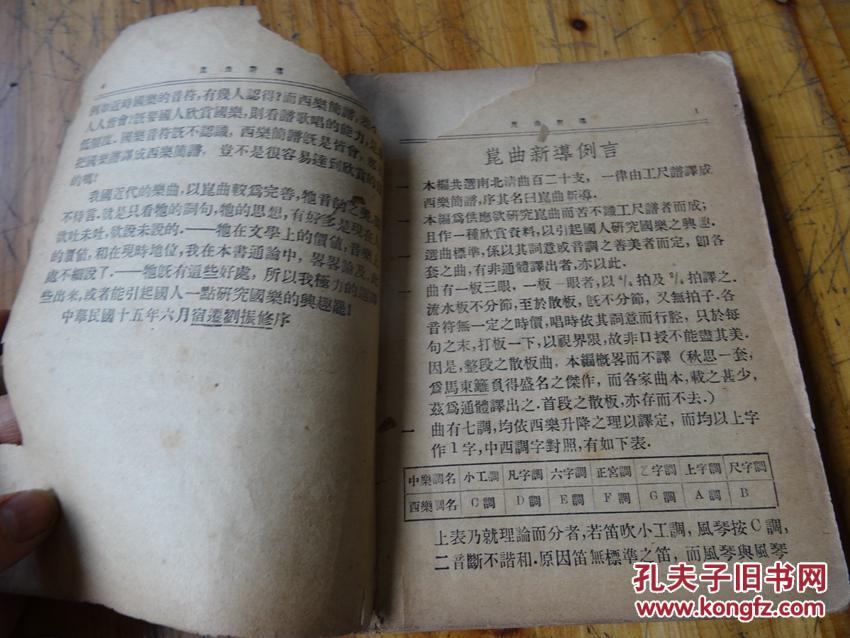 4
崑曲新導
例如近時國樂的音符，有幾人認得？而西樂簡譜，
人人皆會？旣要國人欣賞國樂，則看譜歌唱的能力，
低限度。國樂音符旣不認識，西樂簡譜旣是皆會，
把國樂譜譯成西樂簡譜，豈不是很容易達到欣賞的
的嗎！
我國近代的樂曲，以崑曲較爲完善，牠音韵之美，
不待言，就是只看牠的詞句，牠的思想，有好多是現在人
欲吐未吐，欲說未說的．——牠在文學上的價值，音樂上
的價值，和在現時地位，我在本書通論中，畧畧論及，此
處不細說了．——牠旣有這些好處，所以我極力的選譯
些出來，或者能引起國人一點研究國樂的興趣罷！
中華民國十五年六月宿遷劉振修序
崑曲新導
1
崑曲新導例言
一 本編共選南北淸曲百二十支，一律由工尺譜譯成
西樂簡譜，序其名曰崑曲新導．
一 本編爲供應欲硏究崑曲而苦不識工尺譜者而成；
且作一種欣賞資料，以引起國人硏究國樂之興趣．
一 選曲標準，係以其詞意或音調之善美者而定，卽各
套之曲，有非通體譯出者，亦以此．
一 曲有一板三眼，一板一眼者，以4/4拍及2/4拍譯之．
流水板不分節，至於散板，旣不分節，又無拍子．各
音符無一定之時價，唱時依其詞意而行腔，只於每
句之末，打板一下，以視界限，故非口授不能盡其美．
因是，整段之散板曲，本編槪畧而不譯（秋思一套，
爲馬東籬負得盛名之傑作，而各家曲本，載之甚少，
茲爲通體譯出之．首段之散板，亦存而不去．）
一 曲有七調，均依西樂升降之理以譯定，而均以上字
作1字，中西調字對照，有如下表．
中樂調名 小工調 凡字調 六字調 正宮調 乙字調 上字調 尺字調
西樂調名 C調 D調 E調 F調 G調 A調 B
上表乃就理論而分者，若笛吹小工調，風琴按C調，
二音斷不諧和．原因笛無標準之笛，而風琴與風琴
孔夫子旧书网
www.kongfz.com